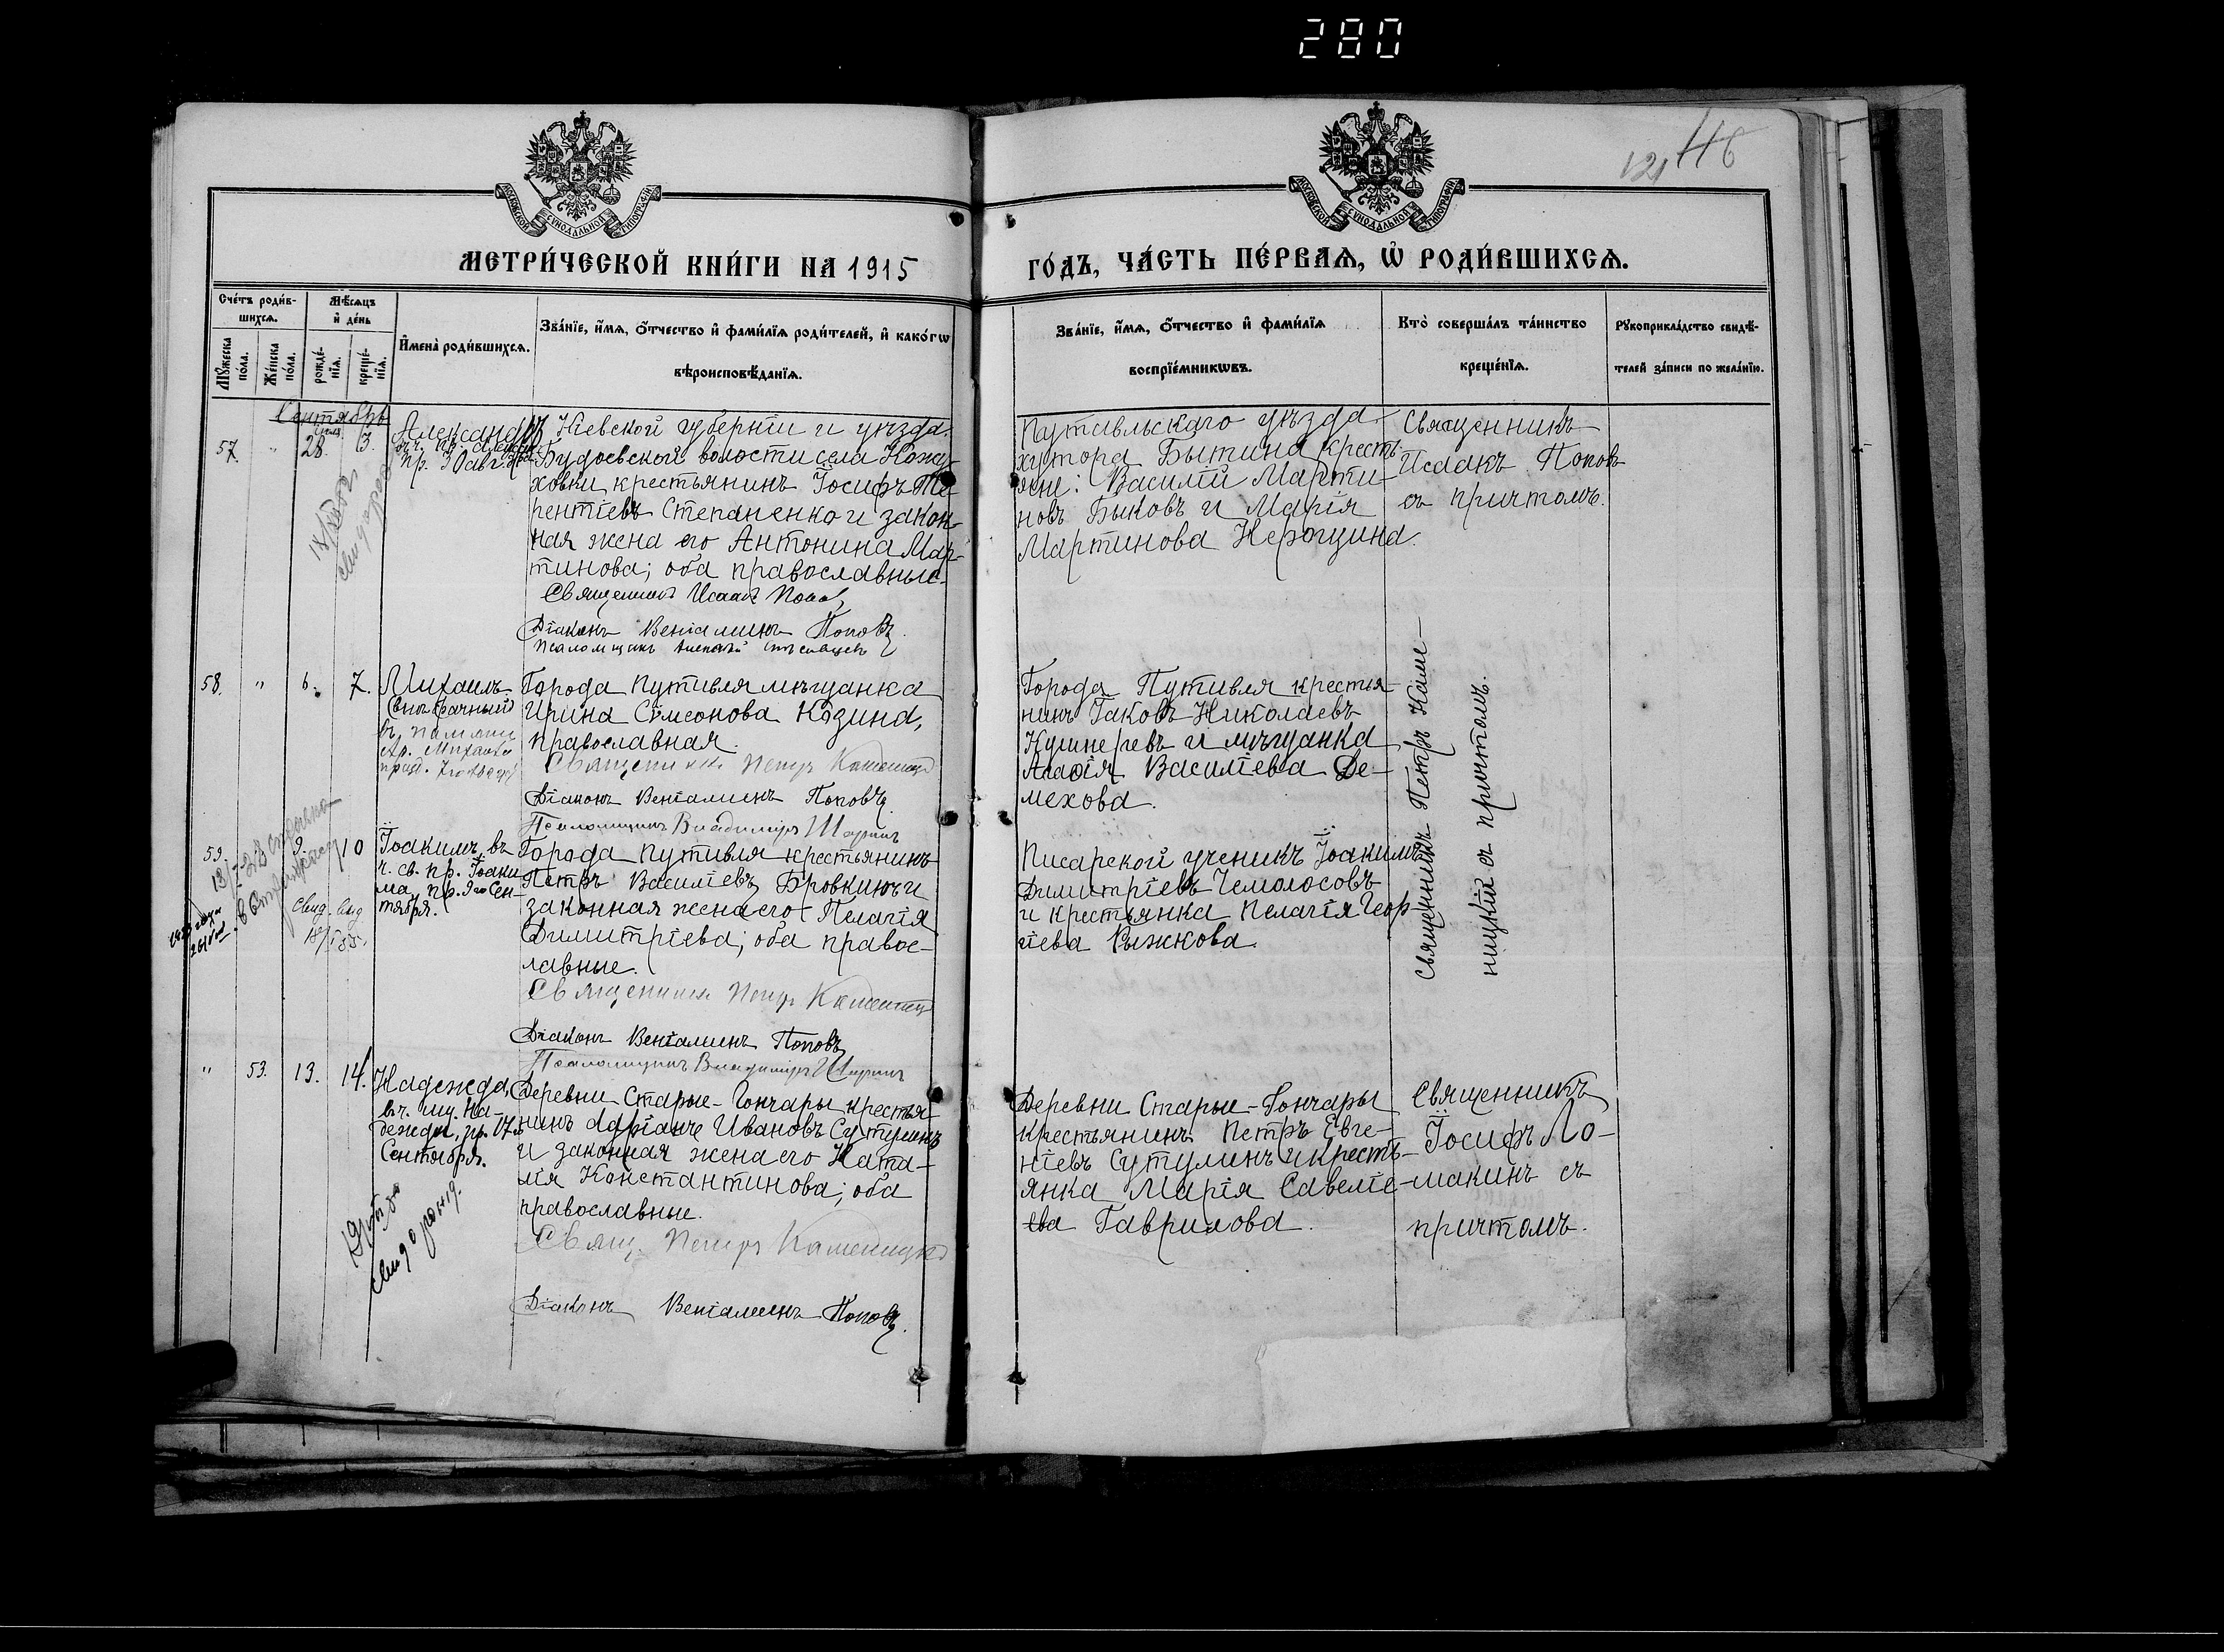 280
121 46
МОСКОВСКОЙ СѴНОДАЛЬНОЙ ТИПОГРАФІИ
МОСКОВСКОЙ СѴНОДАЛЬНОЙ ТИПОГРАФІИ
МЕТРИ́ЧЕСКОЙ КНИ́ГИ НА 1915
ГО́ДЪ, ЧА́СТЬ ПЕ́РВАЯ, Ѡ҆ РОДИ́ВШИХСЯ.
Сче́тъ роди́в-
шихся.
Мꙋжеска по́ла.
Же́нска по́ла.
Мѣ́сяцъ
и҆ де́нь
рожде́-
нїя.
креще́-
нїя.
И҆мена̀ роди́вшихся.
Зва́нїе, и҆́мя, ѻ҆́тчество и҆ фами́лїя роди́телей, и҆ како́гѡ
вѣроисповѣ́данїя.
Зва́нїе, и҆́мя, ѻ҆́тчество и҆ фами́лїя
воспрїе́мникѡвъ.
Кто̀ соверша́лъ та́инство
креще́нїя.
Рꙋкоприкла́дство свидѣ́-
телей за́писи по жела́нїю.
Сентябрь
57. " 28. 3.
Александръ
пр. 30 авг.
Кіевской губерніи и уѣзда
Будаевской волости села Кожу
ховки, крестьянинъ Іосифъ Те
рентіевъ Степаненко и закон-
ная жена его Антонина Мар-
тинова; оба православные.
Священникъ Исаакъ Поповъ
Діаконъ Веніаминъ Поповъ.
Псаломщикъ
Путивльскаго уѣзда
хутора Бытина кресть
яне: Василій Марти-
новъ Быковъ и Марія
Мартинова
Священникъ
Исаакъ Поповъ
съ причтомъ.
58. " 6. 7.
Михаилъ
(внѣбрачный)
въ память
Города Путивля мѣщанка
Ирина Симеонова Козина,
православная.
Священникъ Петръ Каменицкій
Діаконъ Веніаминъ Поповъ.
Псаломщикъ Владиміръ
Города Путивля крестья-
нинъ Іаковъ Николаевъ
Кушнеревъ и мѣщанка
Агафія Василіева Де-
мехова.
Священникъ Петръ Каме-
ницкій съ причтомъ.
59. 9. 10
Іоакимъ, въ
ч. св. пр. Іоаки
ма, пр. 9го Сен-
тября.
Города Путивля крестьянинъ
Петръ Василіевъ Бровкинъ и
законная жена его Пелагія
Димитріева; оба правос-
лавные.
Священникъ Петръ Каменицкій
Діаконъ Веніаминъ Поповъ
Псаломщикъ Владиміръ
Писарской ученикъ Іоакимъ
Димитріевъ Чемолосовъ
и крестьянка Пелагія Геор
гіева Рыжкова.
" 53. 13. 14.
Надежда,
в ч. мц. На-
дежды, пр. 17го
Сентября.
Деревни Старые-Гончары крестья
нинъ Адріанъ Ивановъ Сутулинъ
и законная жена его Ната-
лія Константинова; оба
православные.
Свящ. Петръ Каменицкій
Діаконъ Веніаминъ Поповъ.
Деревни Старые-Гончары
крестьянинъ Петръ Евге-
ніевъ Сутулинъ и кресть-
янка Марія Савеліе-
ва Гаврилова.
Священникъ
Іосифъ Ло-
макинъ съ
причтомъ.